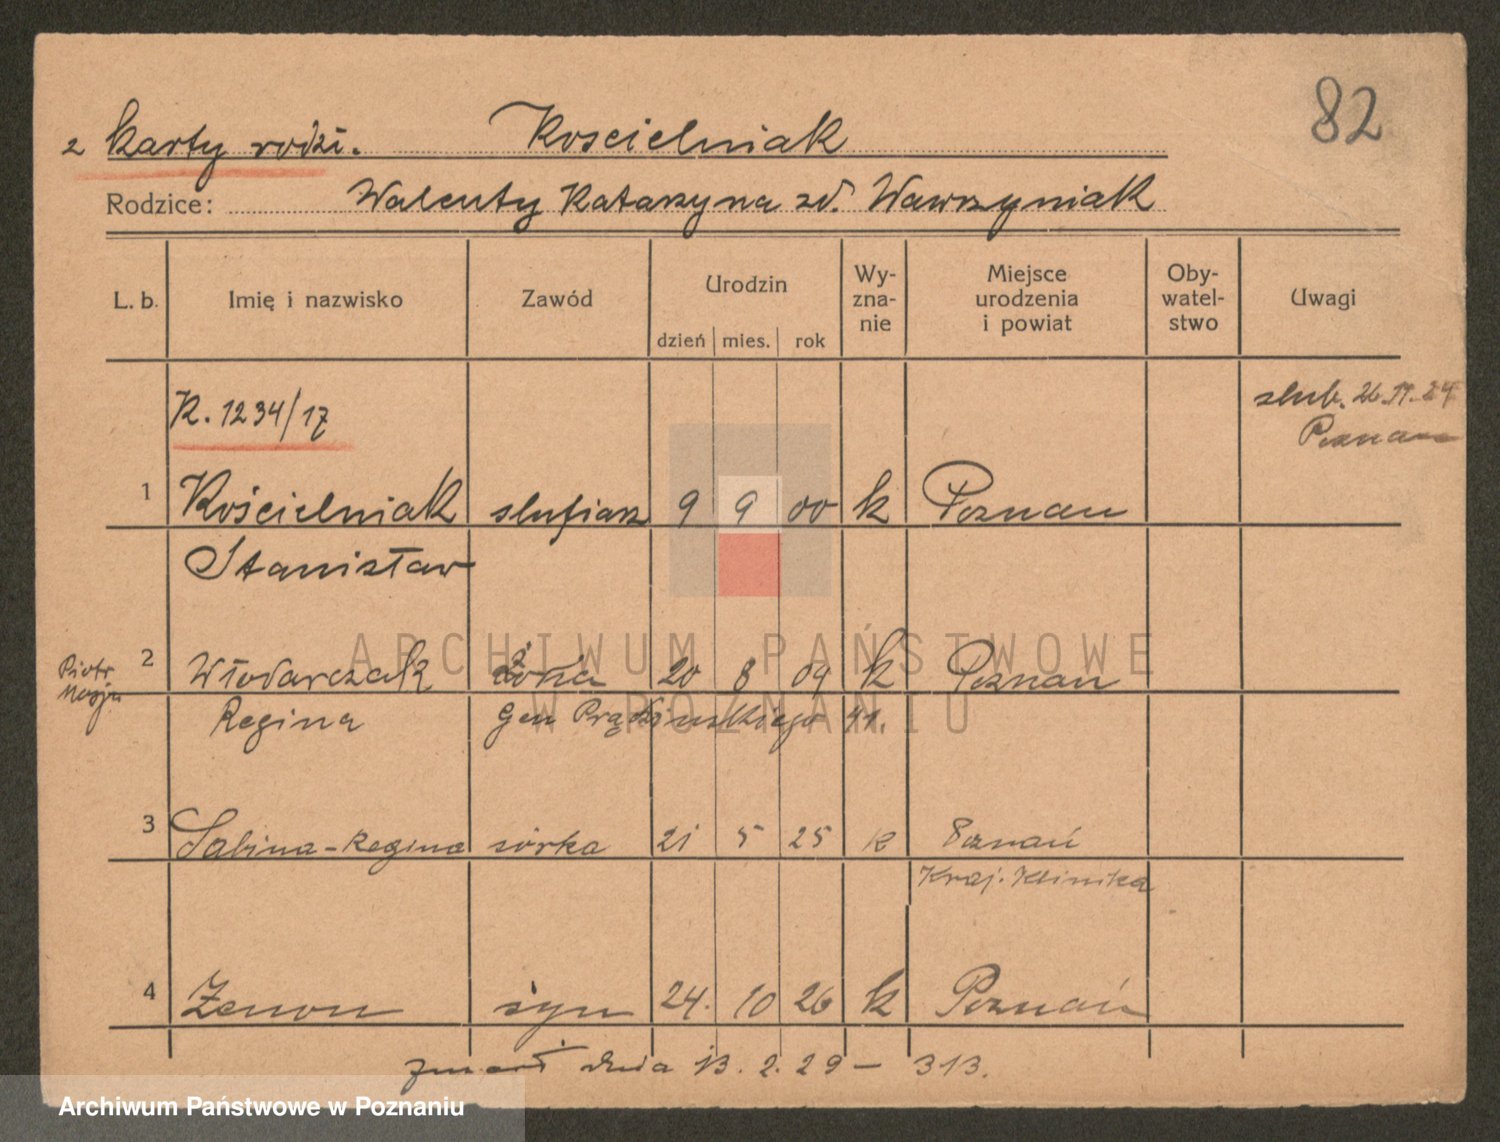 82
z karty rodzi. Kościelniak
Rodzice: Walenty Katarzyna zd. Wawrzyniak
L. b. Imię i nazwisko Zawód Urodzin Wy-zna-nie Miejsce urodzenia i powiat Oby-watel-stwo Uwagi
dzień mies. rok
K. 1234/17 slub. 26.11.24
Poznan
1 Kościelniak 9 9 00 k Poznan
Stanisław
2 Włodarczak żona 20 8 04 k Poznan
Piotr
Regina Gen Prądzinskiego 41.
3 Sabina-Regina córka 21 5 25 k Poznań
Kraj. Klinika
4 Zenon syn 24. 10 26 k Poznań
zmarł dnia 13. 2. 29 - 313.
ARCHIWUM PAŃSTWOWE
W POZNANIU
Archiwum Państwowe w Poznaniu